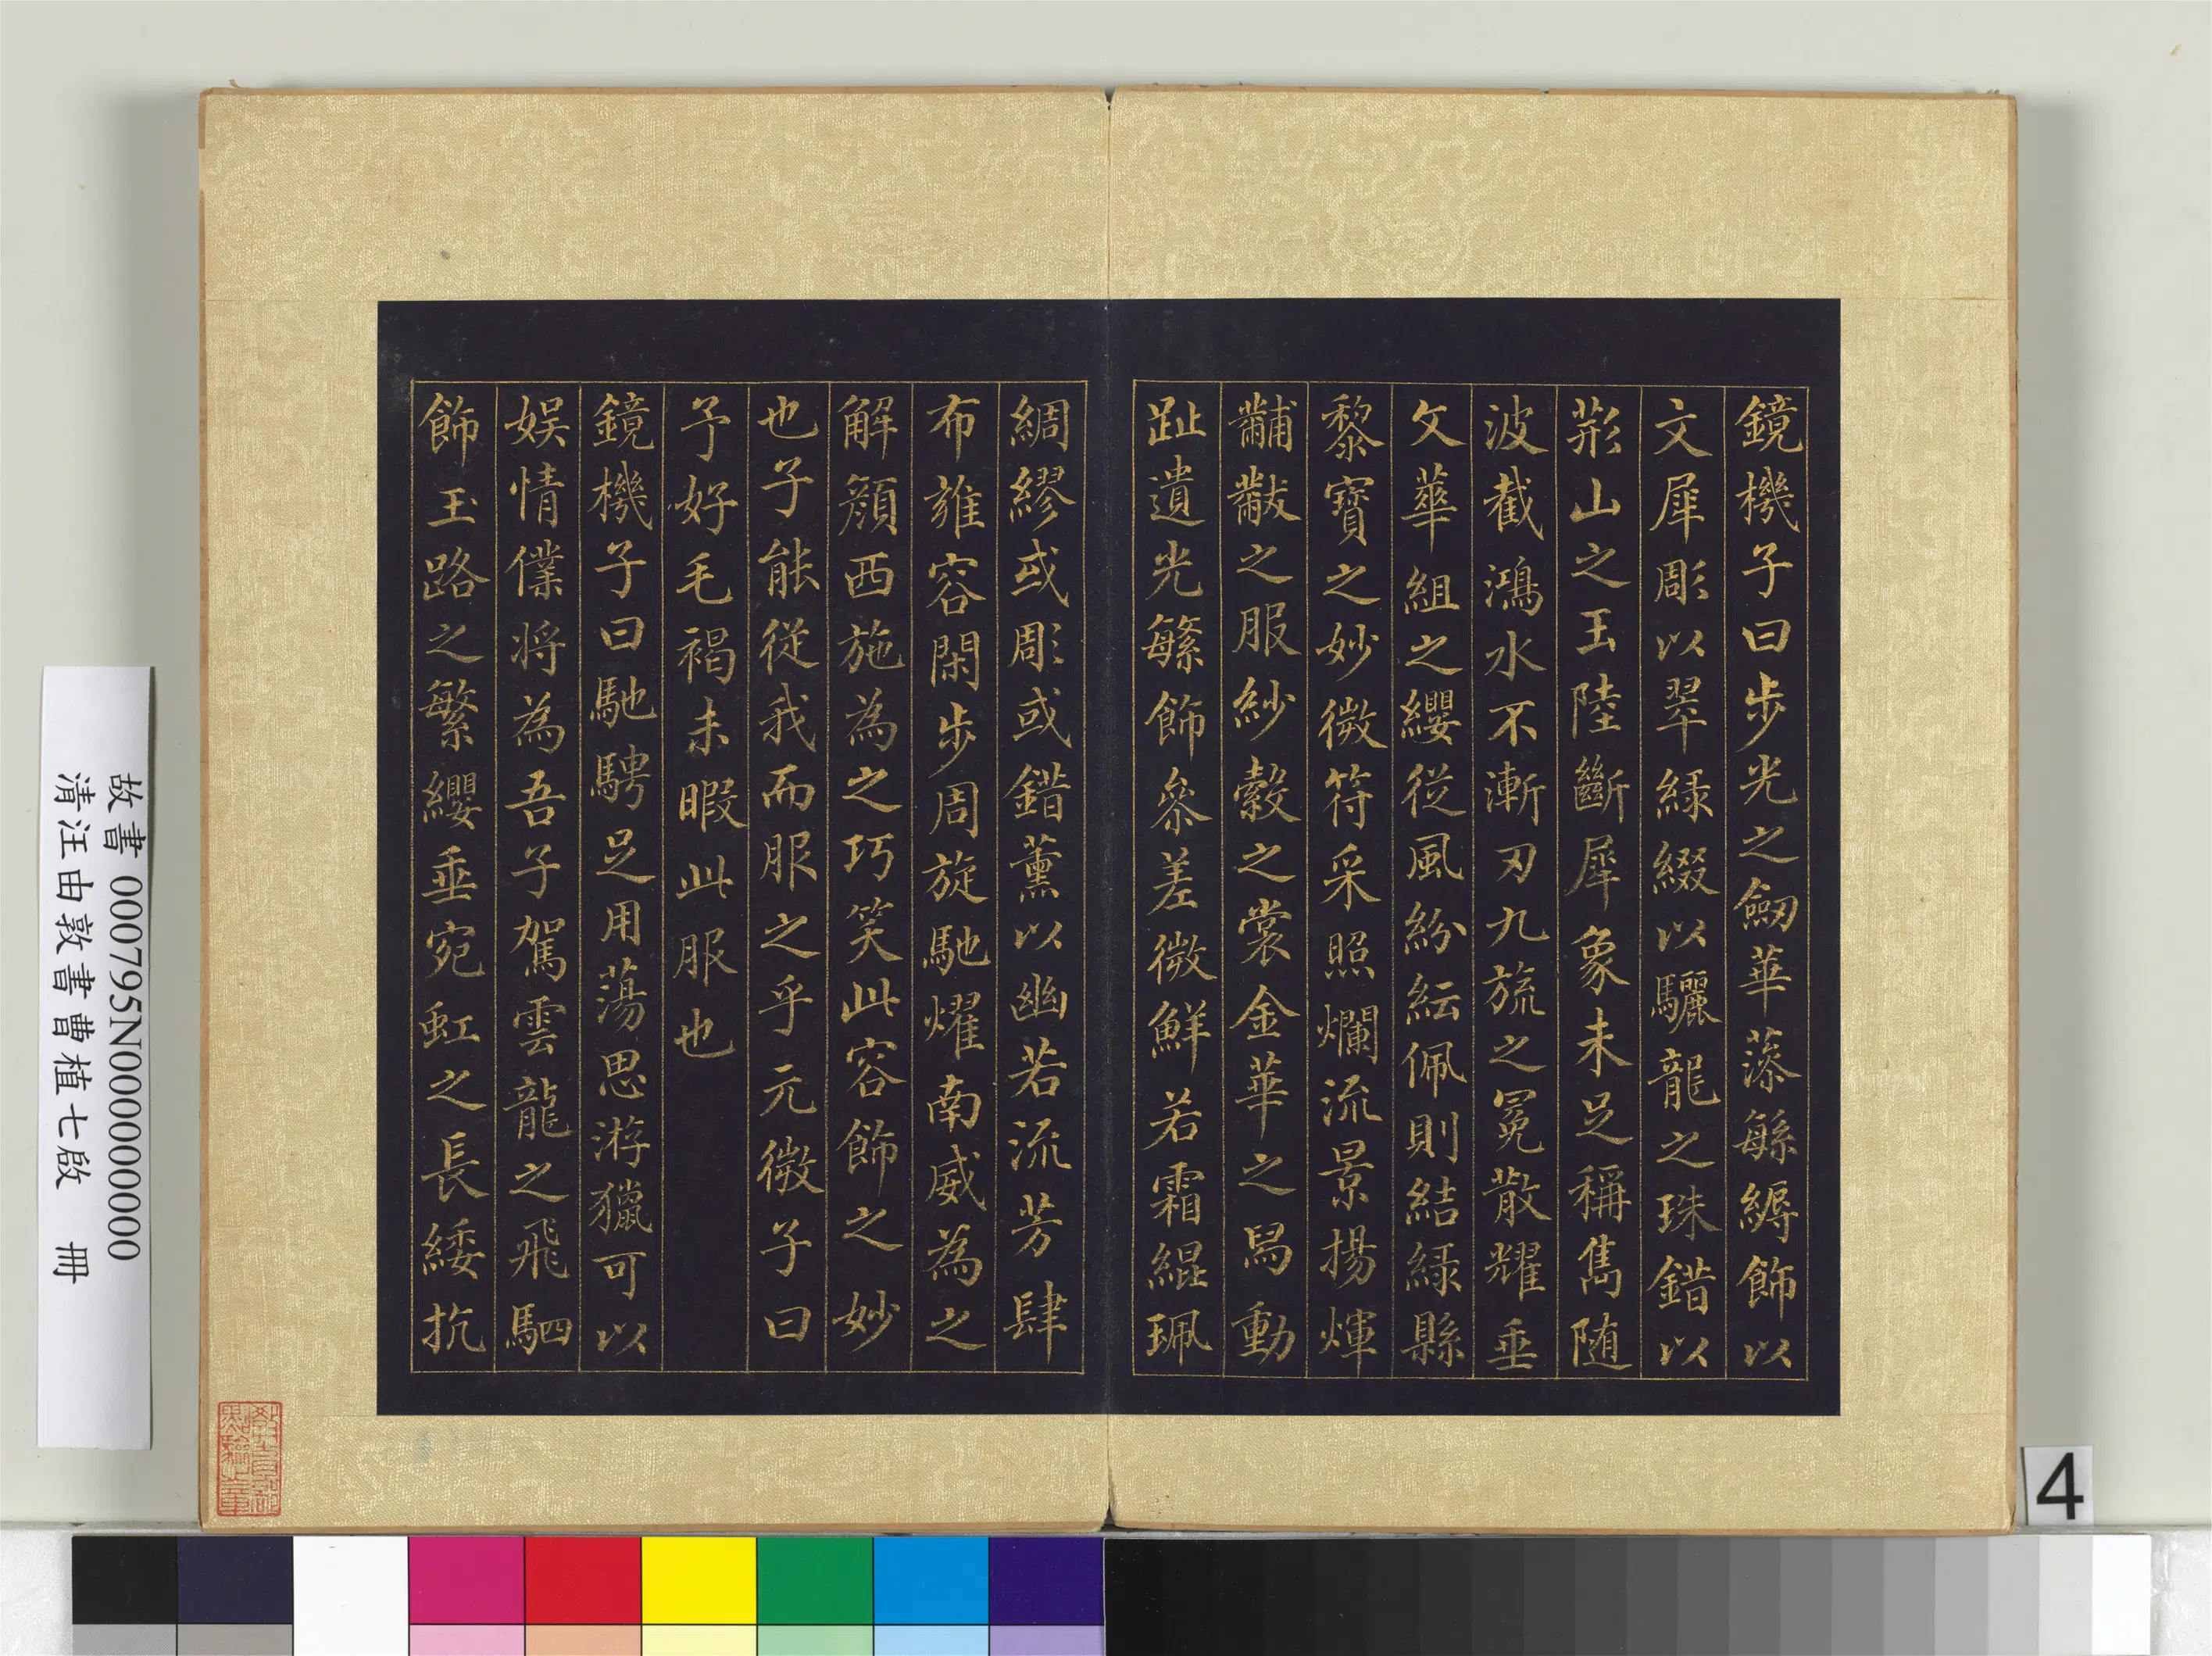 鏡機子曰步光之劒華藻緐縟飾以
文犀彫以翠綠綴以驪龍之珠錯以
荊山之玉陸斷犀象未足稱雋随
波截鴻水不漸刃九旒之冕散耀垂
文華組之纓從風紛紜佩則結綠縣
黎寶之妙微符采照爛流景揚煇
黼黻之服紗縠之裳金華之舄動
趾遺光繁飾參差微鮮若霜緄珮
綢繆或彫或錯薰以幽若流芳肆
布雍容閑步周旋馳燿南威為之
解顏西施為之巧笑此容飾之妙
也子能從我而服之乎元微子曰
予好毛褐未暇此服也
鏡機子曰馳騁足用蕩思游獵可以
娛情僕將為吾子駕雲龍之飛駟
飾玉路之繁纓垂宛虹之長緌抗
故書 000795N000000000
清汪由敦書曹植七啟 冊
4